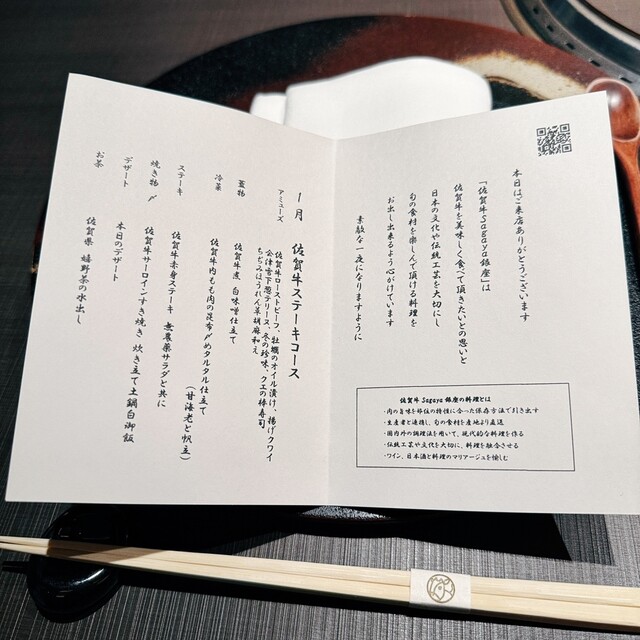 本日はご来店ありがとうございます
「佐賀牛Sagaya銀座」は
佐賀牛を美味しく食べて頂きたいとの思いと
日本の文化や伝統工芸を大切にし
旬の食材を楽しんで頂ける料理を
お出し出来るよう心がけています
素敵な一夜になりますように
佐賀牛 Sagaya 銀座の料理とは
・肉の旨味を部位の特性に合った保存方法で引き出す
・生産者と連携し、旬の食材を産地より直送
・国内外の調理法を用いて、現代的な料理を作る
・伝統工芸や文化を大切に、料理を融合させる
・ワイン、日本酒と料理のマリアージュを愉しむ
1月 佐賀牛ステーキコース
アミューズ
佐賀牛ローストビーフ、牡蠣のオイル漬け、揚げクワイ
会津雪下葱テリーヌ、冬の珍味、クエの棒寿司
ちぢみほうれん草胡麻和え
蓋物 佐賀牛凌 白味噌仕立て
冷菜 佐賀牛内もも肉の昆布〆めタルタル仕立て
（甘海老と帆立）
ステーキ 佐賀牛赤身ステーキ 無農薬サラダと共に
焼き物 〆 佐賀牛サーロインすき焼き 炊き立て土鍋白御飯
デザート 本日のデザート
お茶 佐賀県 嬉野茶の水出し